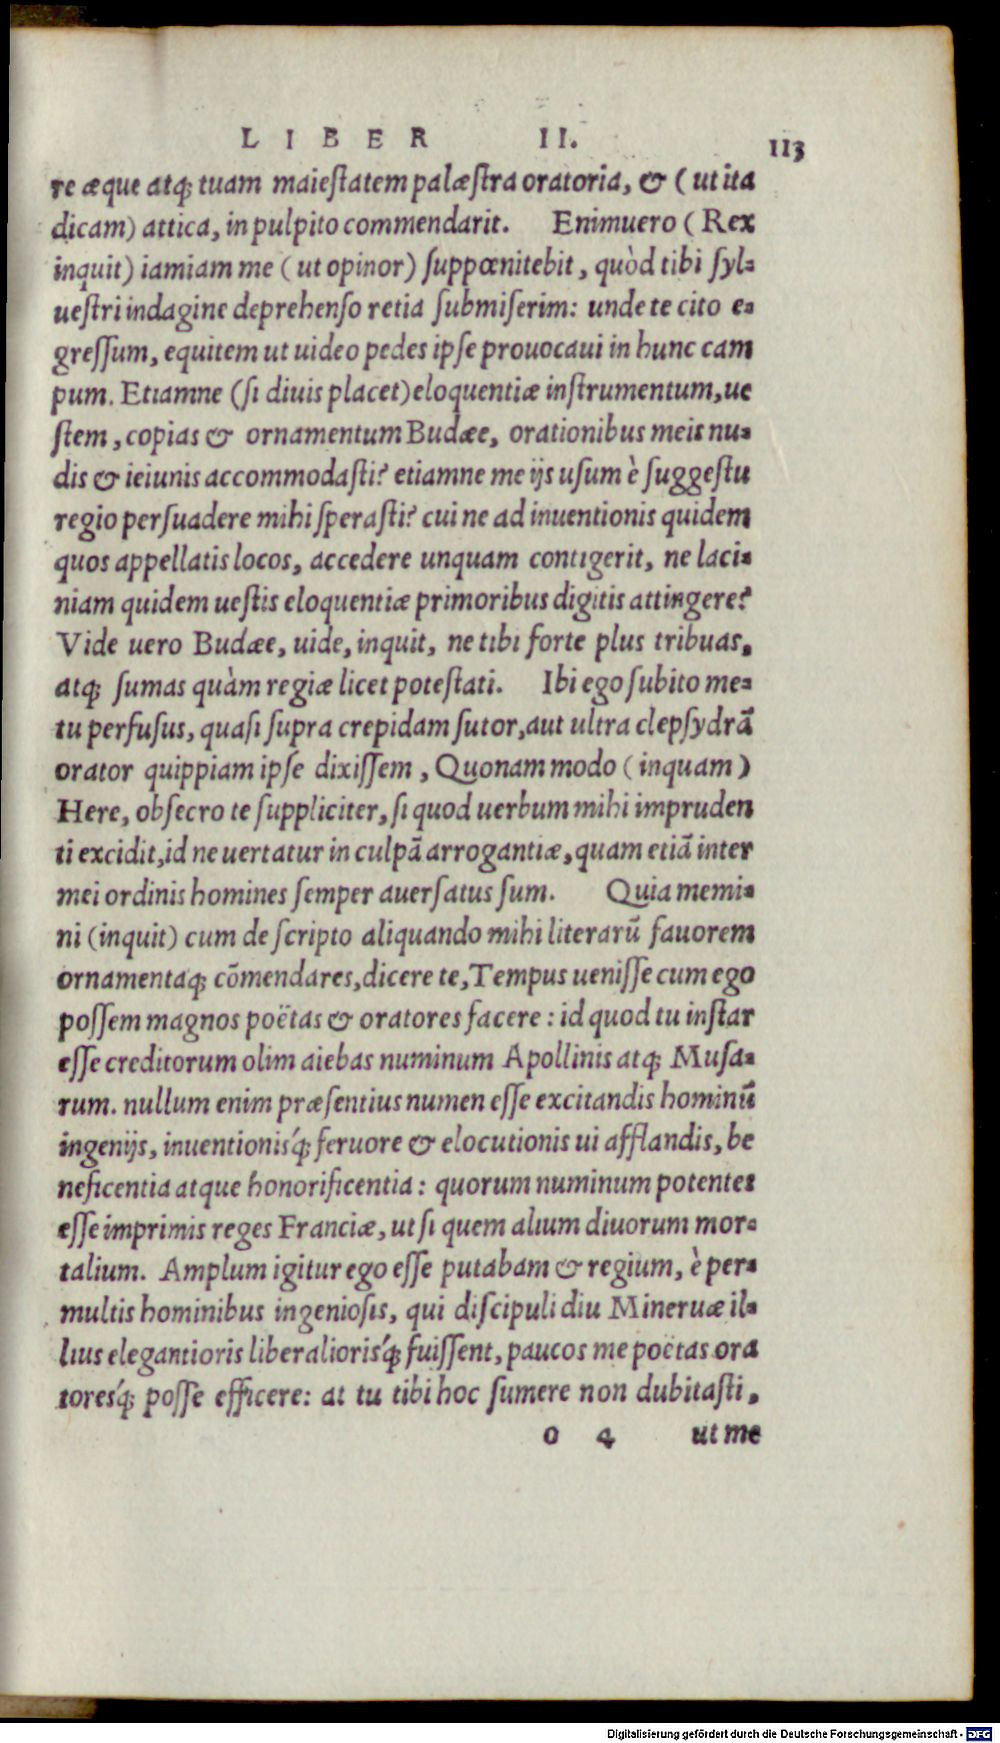 LIBER II. 113
re æque atq; tuam maiestatem palæstra oratoria, & (ut ita
dicam) attica, in pulpito commendarit. Enimuero (Rex
inquit) iamiam me (ut opinor) suppœnitebit, quòd tibi syl-
uestri indagine deprehenso retia submiserim: unde te cito e-
gressum, equitem ut uideo pedes ipse prouocaui in hunc cam
pum. Etiamne (si diuis placet) eloquentiæ instrumentum, ue
stem, copias & ornamentum Budæe, orationibus meis nu-
dis & ieiunis accommodasti? etiamne me ijs usum è suggestu
regio persuadere mihi sperasti? cui ne ad inuentionis quidem
quos appellatis locos, accedere unquam contigerit, ne laci-
niam quidem uestis eloquentiæ primoribus digitis attingere?
Vide uero Budæe, uide, inquit, ne tibi forte plus tribuas,
atq; sumas quàm regiæ licet potestati. Ibi ego subito me-
tu perfusus, quasi supra crepidam sutor, aut ultra clepsydrā
orator quippiam ipse dixissem, Quonam modo (inquam)
Here, obsecro te suppliciter, si quod uerbum mihi impruden
ti excidit, id ne uertatur in culpā arrogantiæ, quam etiā inter
mei ordinis homines semper auersatus sum. Quia memi-
ni (inquit) cum de scripto aliquando mihi literarū fauorem
ornamentaq; cōmendares, dicere te, Tempus uenisse cum ego
possem magnos poëtas & oratores facere: id quod tu instar
esse creditorum olim aiebas numinum Apollinis atq; Musa-
rum. nullum enim præsentius numen esse excitandis hominū
ingenijs, inuentionis´q; feruore & elocutionis ui afflandis, be
neficentia atque honorificentia: quorum numinum potentes
esse imprimis reges Franciæ, ut si quem alium diuorum mor-
talium. Amplum igitur ego esse putabam & regium, è per-
multis hominibus ingeniosis, qui discipuli diu Mineruæ il-
lius elegantioris liberalioris´q; fuissent, paucos me poëtas ora
tores´q; posse efficere: at tu tibi hoc sumere non dubitasti,
o 4 ut me
Digitalisierung gefördert durch die Deutsche Forschungsgemeinschaft - DFG